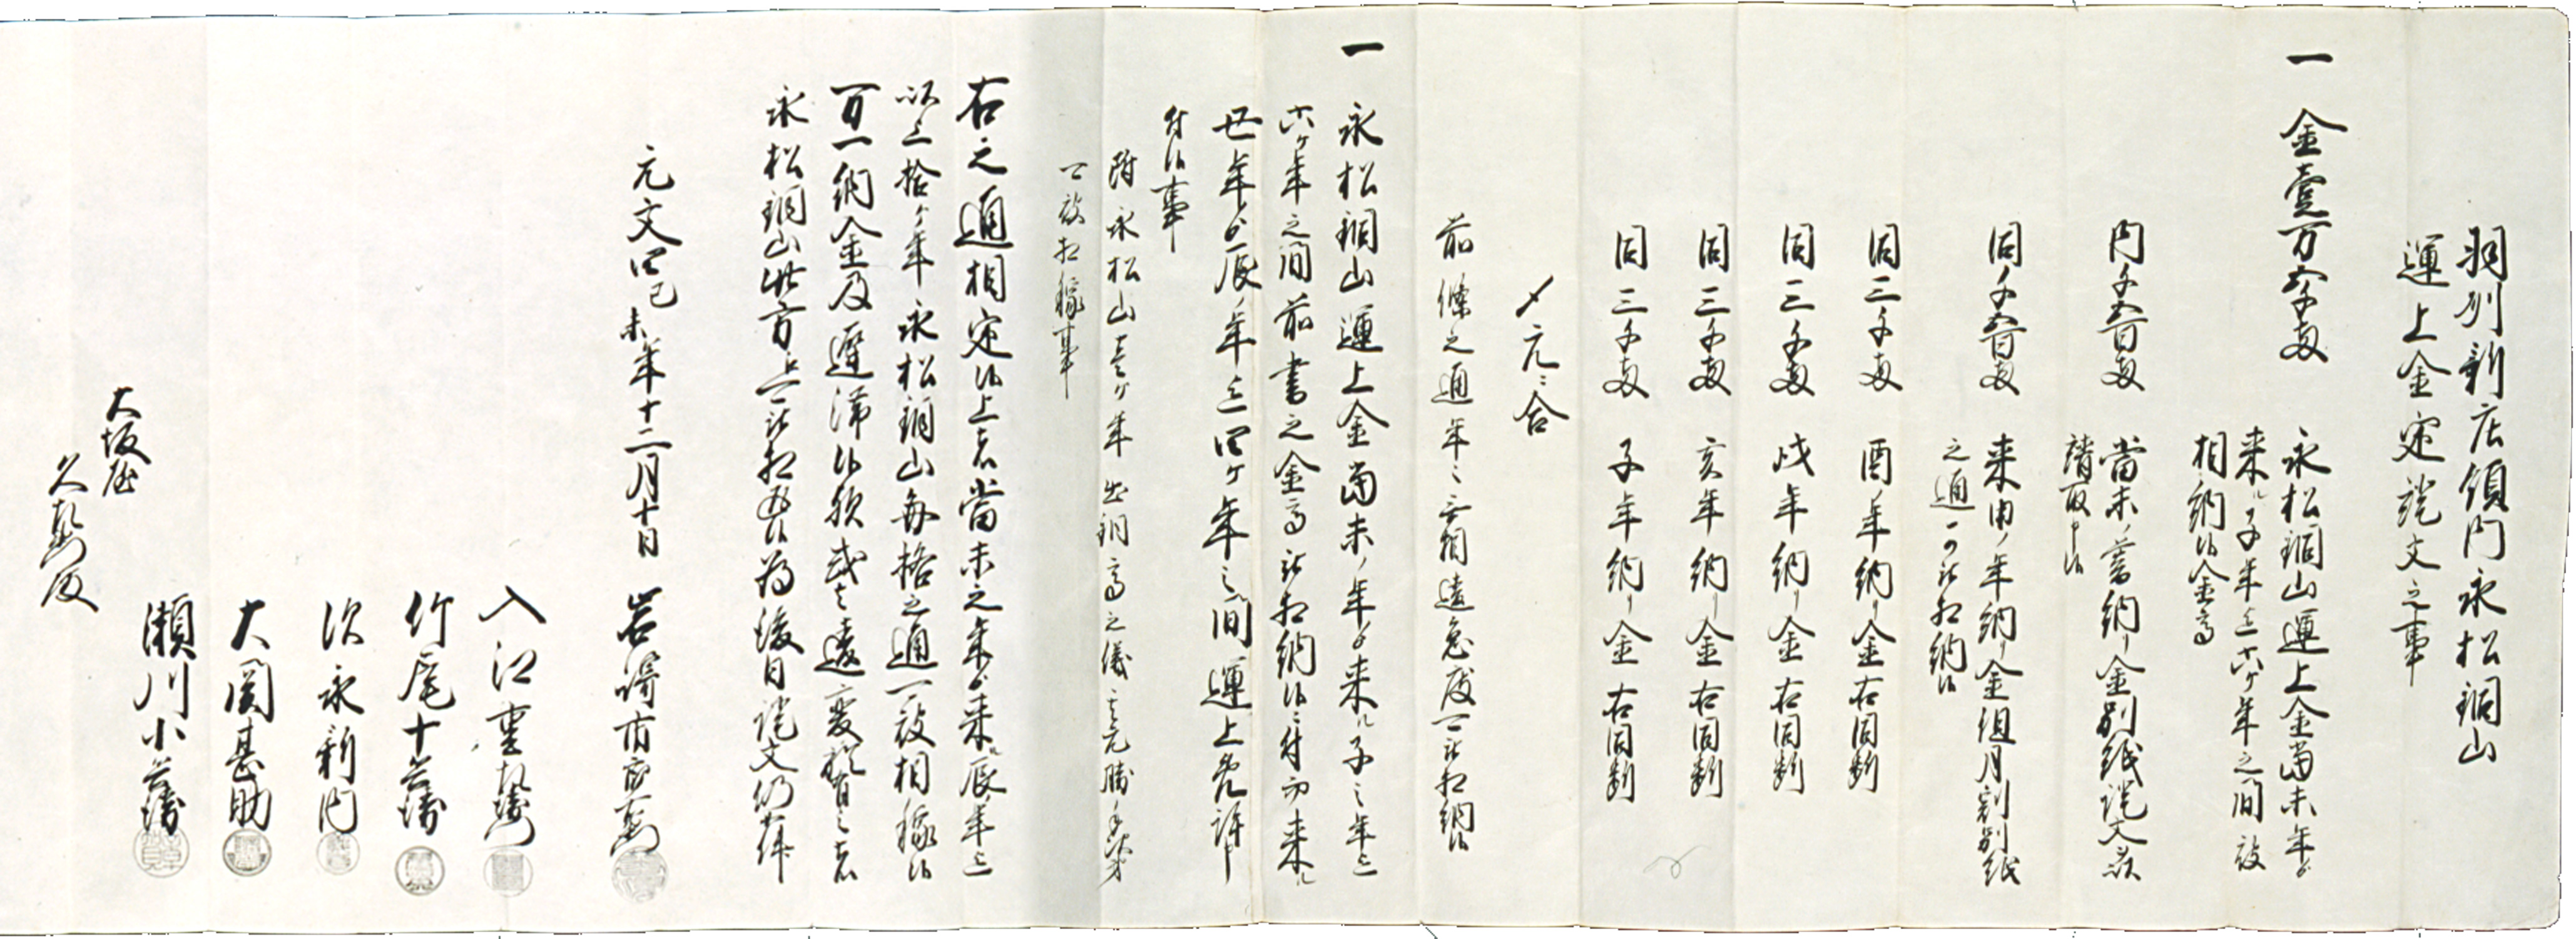 羽州新庄領内永松銅山
運上金定証文之事
一金壱万五千両 永松銅山運上金当未年ゟ
来ル子年迄六ケ年之間被
相納候金高
内千五百両 当未ノ暮納リ金別紙証文を以
請取申候
同千五百両 来申ノ年納リ金組月割別紙
之通可被相納候
同三千両 酉ノ年納リ金右同断
同三千両 戌年納リ金右同断
同三千両 亥年納リ金右同断
同三千両 子年納リ金右同断
〆元ニ合
前条之通年々無相違急度可被相納候
一永松銅山運上金当未ノ年ゟ来ル子之年迄
六ケ年之間前書之金高被相納候ニ付而来ル
丑年ゟ辰ノ年迄四ケ年之間運上免許申
付候事
附永松山壱ケ年出銅高之儀者其元勝手次第
可被相稼事
右之通相定候上者当未之年ゟ来ル辰年迄
以上拾ケ年永松銅山毎格之通可被相稼候
万一納金及遅滞候歟或者違変於有之者
永松銅山此方江可被相返候為後日証文仍如件
元文四己未年十二月十日
岩崎市兵衛
入江重兵衛
竹尾十兵衛
須永新内
大関甚助
瀬川小兵衛
大坂屋
久左衛門殿